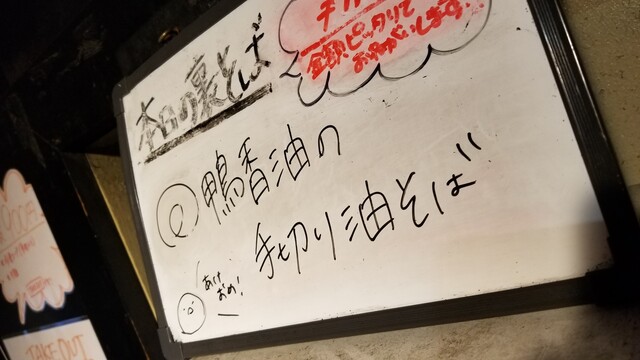 本日の裏そば
金額ピッタリで
お願いします。
鴨香油の
手切り油そば
あけ
おめ!
TAKE OUT